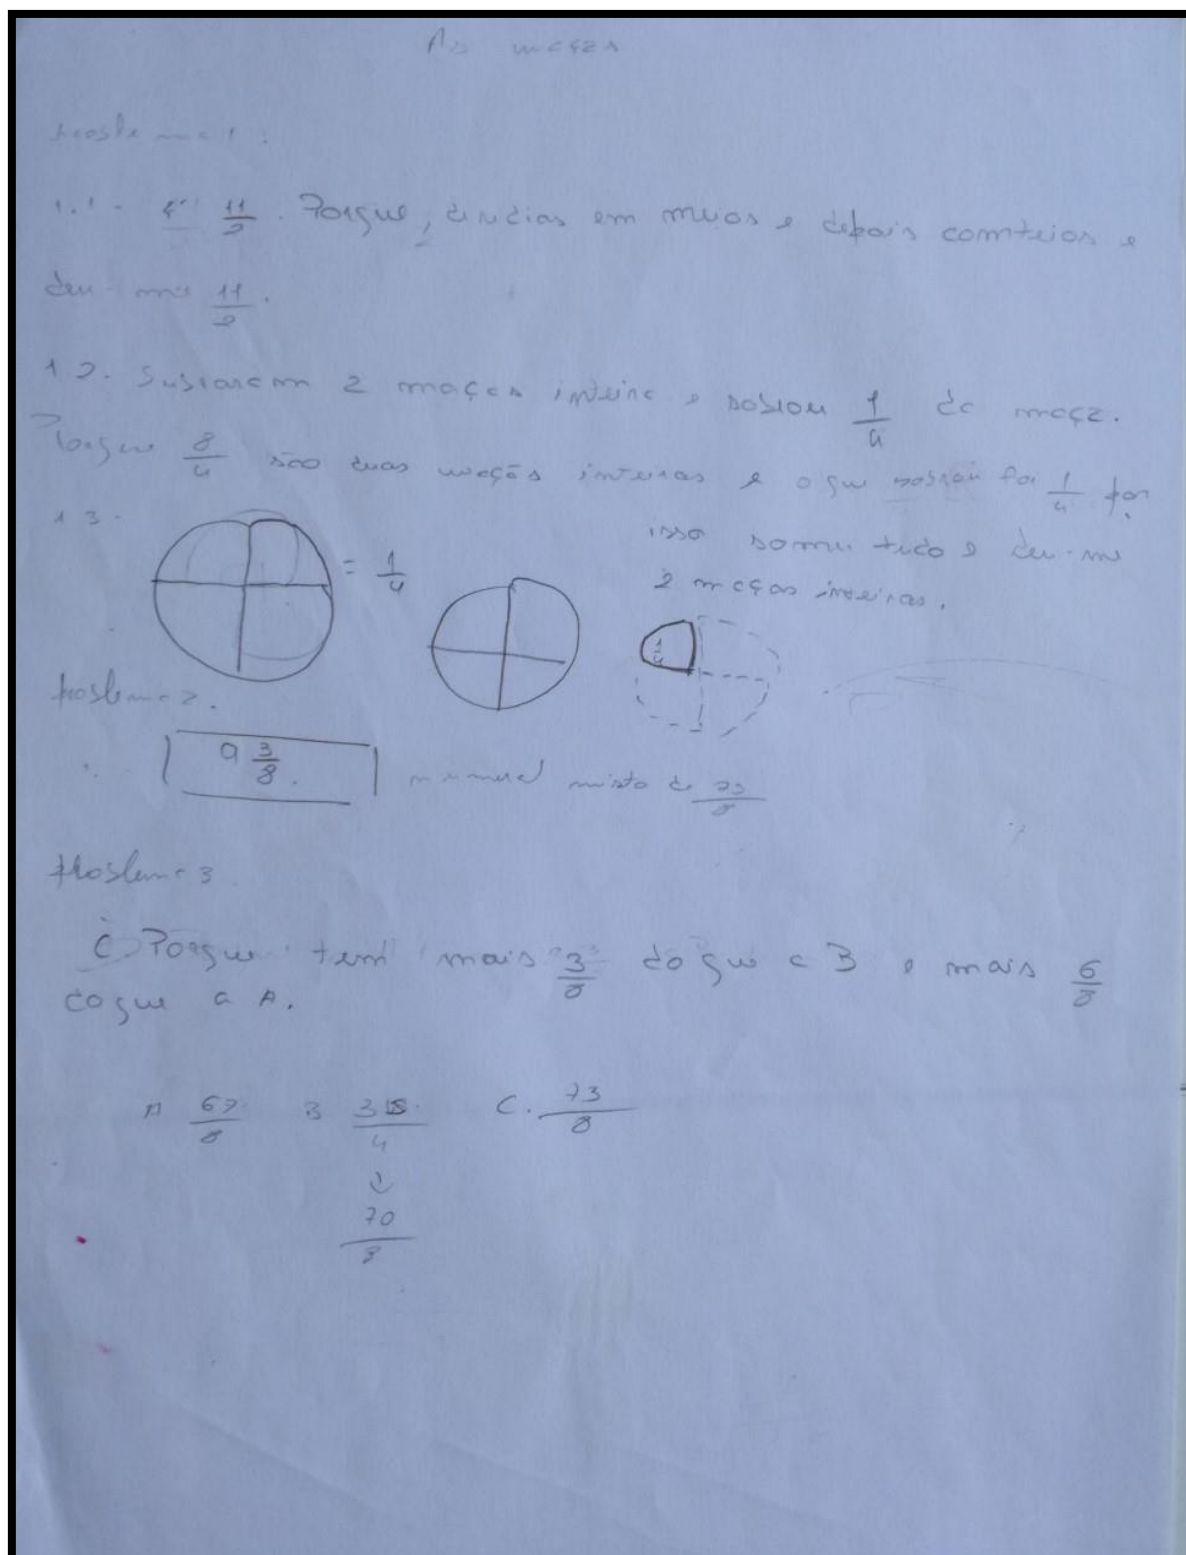 As maçãs
Problema 1.
1.1 - 11/2. Porque, dividias em meios e depois conteios e
deu-me 11/2.
1 2. Subraram 2 maçãs inteira e sobrou 1/4 da maçã.
Porque 8/4 são duas maçãs inteiras e o que sobrou foi 1/4 por
isso somei tudo e deu-me
2 maçãs inteiras.
1 3.
= 1/4
1/4
Problema 2.
9 3/8. numeral misto de 75/8
Problema 3
C Porque tem mais 3/8 do que a B e mais 6/8
do que a A.
A 67/8 B 35/4 C. 73/8
70/8